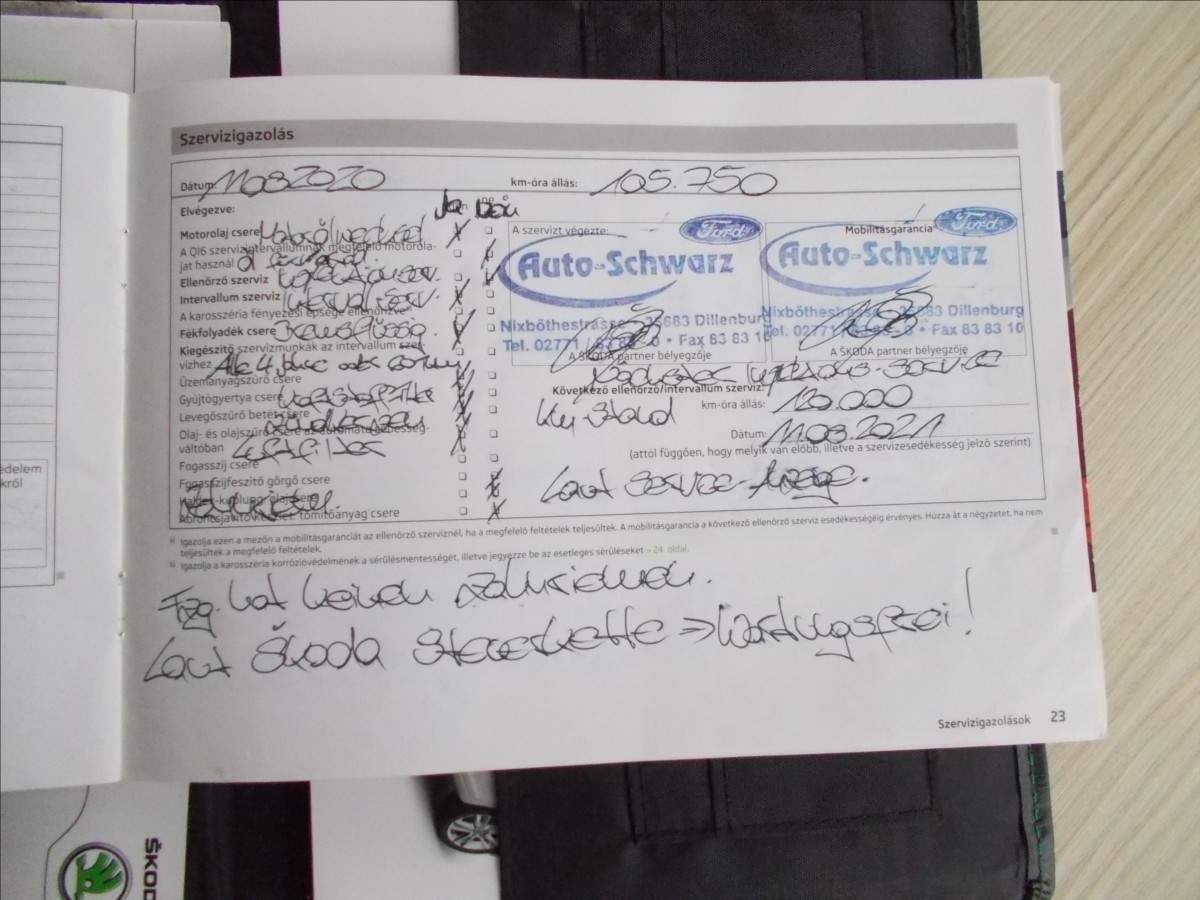 Szervizigazolás
Dátum: 11.08.2020 km-óra állás: 105.750
Elvégezve: Ja Nein
Motorolaj csere Motorölwechsel
A QI6 szervizintervallumnak megfelelő motorola-
jat használ
Ellenőrző szerviz
Intervallum szerviz Intervall serv.
A karosszéria fényezési épsége ellenőrizve
Fékfolyadék csere Bremsflüssig.
Kiegészítő szervizmunkák az intervallum szer-
vizhez Alle 4 Jahre oder
Üzemanyagszűrő csere
Gyújtógyertya csere
Levegőszűrő betét csere
Olaj- és olajszűrő csere az automata sebesség
váltóban Luftfilter
Fogasszíj csere
Fogasszíjfeszítő görgő csere
Haldex-kuplung olajcsere
Abroncsjavító készlet: tömítőanyag csere
Zahnriemen
A szervizt végezte:
Ford
Auto-Schwarz
Nixböthestrasse 35683 Dillenburg
Tel. 02771 / 83 83 - 0 • Fax 83 83 10
A ŠKODA partner bélyegzője
Mobilitásgarancia
Ford
Auto-Schwarz
Nixböthestrasse 35683 Dillenburg
Tel. 02771 / 83 83 - 0 • Fax 83 83 10
A ŠKODA partner bélyegzője
Nächster Inspektions-Service
Következő ellenőrző/intervallum szerviz:
Km-Stand km-óra állás: 120.000
Dátum: 11.08.2021
(attól függően, hogy melyik van előbb, illetve a szervizesedékesség jelző szerint)
Laut Service-Anzeige.
Igazolja ezen a mezőn a mobilitásgaranciát az ellenőrző szerviznél, ha a megfelelő feltételek teljesültek. A mobilitásgarancia a következő ellenőrző szerviz esedékességéig érvényes. Húzza át a négyzetet, ha nem
teljesültek a megfelelő feltételek.
Igazolja a karosszéria korrózióvédelmének a sérülésmentességét, illetve jegyezze be az esetleges sérüléseket » 24. oldal.
Fzg. hat keinen Zahnriemen.
Laut Škoda Steuerkette => Wartungsfrei!
Szervizigazolások 23
édelem
król
ŠKOD